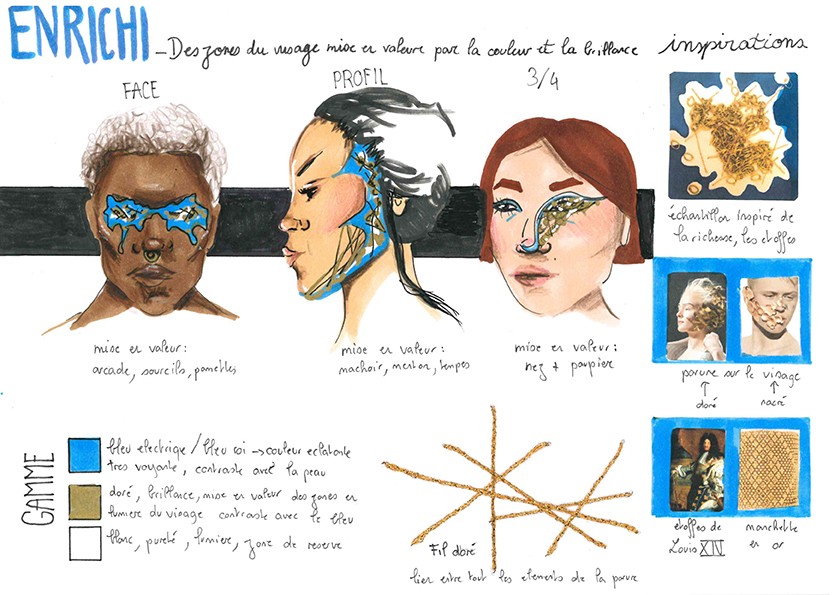 ENRICHI _ Des zones du visage mise en valeure par la couleur et la brillance
inspirations
FACE
PROFIL
3/4
échantillon inspiré de
la richesse, les etoffes
mise en valeur :
arcade, sourcils, pomettes
mise en valeur :
machoir, menton, tempes
mise en valeur :
nez + paupier
parure sur le visage
doré
nacré
GAMME
bleu electrique / bleu roi → couleur eclatante
tres voyante, contraste avec la peau
doré, brillance, mise en valeur des zones en
lumiere du visage contraste avec le bleu
blanc, pureté, lumiere, zone de reserve
Fil doré
lien entre tout les elements de la parure
etoffes de
Louis XIV
manchette
en or